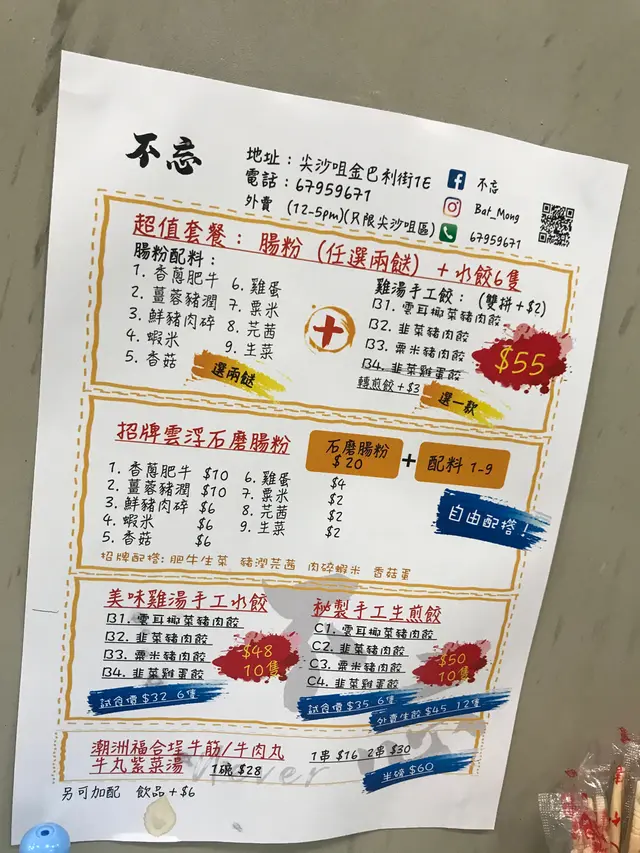 不忘
地址：尖沙咀金巴利街1E
電話：67959671
外賣 (12-5pm)(只限尖沙咀區)
不忘
Bat_Mong
67959671
超值套餐： 腸粉 (任選兩餸) + 水餃6隻
腸粉配料：
1. 香蔥肥牛
2. 薑蓉豬潤
3. 鮮豬肉碎
4. 蝦米
5. 香菇
6. 雞蛋
7. 粟米
8. 芫茜
9. 生菜
選兩餸
+
雞湯手工餃： (雙拼+$2)
B1. 雲耳椰菜豬肉餃
B2. 韭菜豬肉餃
B3. 粟米豬肉餃
B4. 韭菜雞蛋餃
轉煎餃+$3
選一款
$55
招牌雲浮石磨腸粉
石磨腸粉
$20
+
配料 1-9
1. 香蔥肥牛 $10
2. 薑蓉豬潤 $10
3. 鮮豬肉碎 $6
4. 蝦米 $6
5. 香菇 $6
6. 雞蛋 $4
7. 粟米 $2
8. 芫茜 $2
9. 生菜 $2
自由配搭！
招牌配搭: 肥牛生菜 豬潤芫茜 肉碎蝦米 香菇蛋
美味雞湯手工水餃
B1. 雲耳椰菜豬肉餃
B2. 韭菜豬肉餃
B3. 粟米豬肉餃
B4. 韭菜雞蛋餃
$48
10隻
試食價 $32 6隻
秘製手工生煎餃
C1. 雲耳椰菜豬肉餃
C2. 韭菜豬肉餃
C3. 粟米豬肉餃
C4. 韭菜雞蛋餃
$50
10隻
試食價 $35 6隻
外賣生餃 $45 12隻
潮洲福合埕牛筋/牛肉丸 1串 $16 2串 $30
牛丸紫菜湯 1碗 $28
半磅 $60
Never
另可加配 飲品+$6